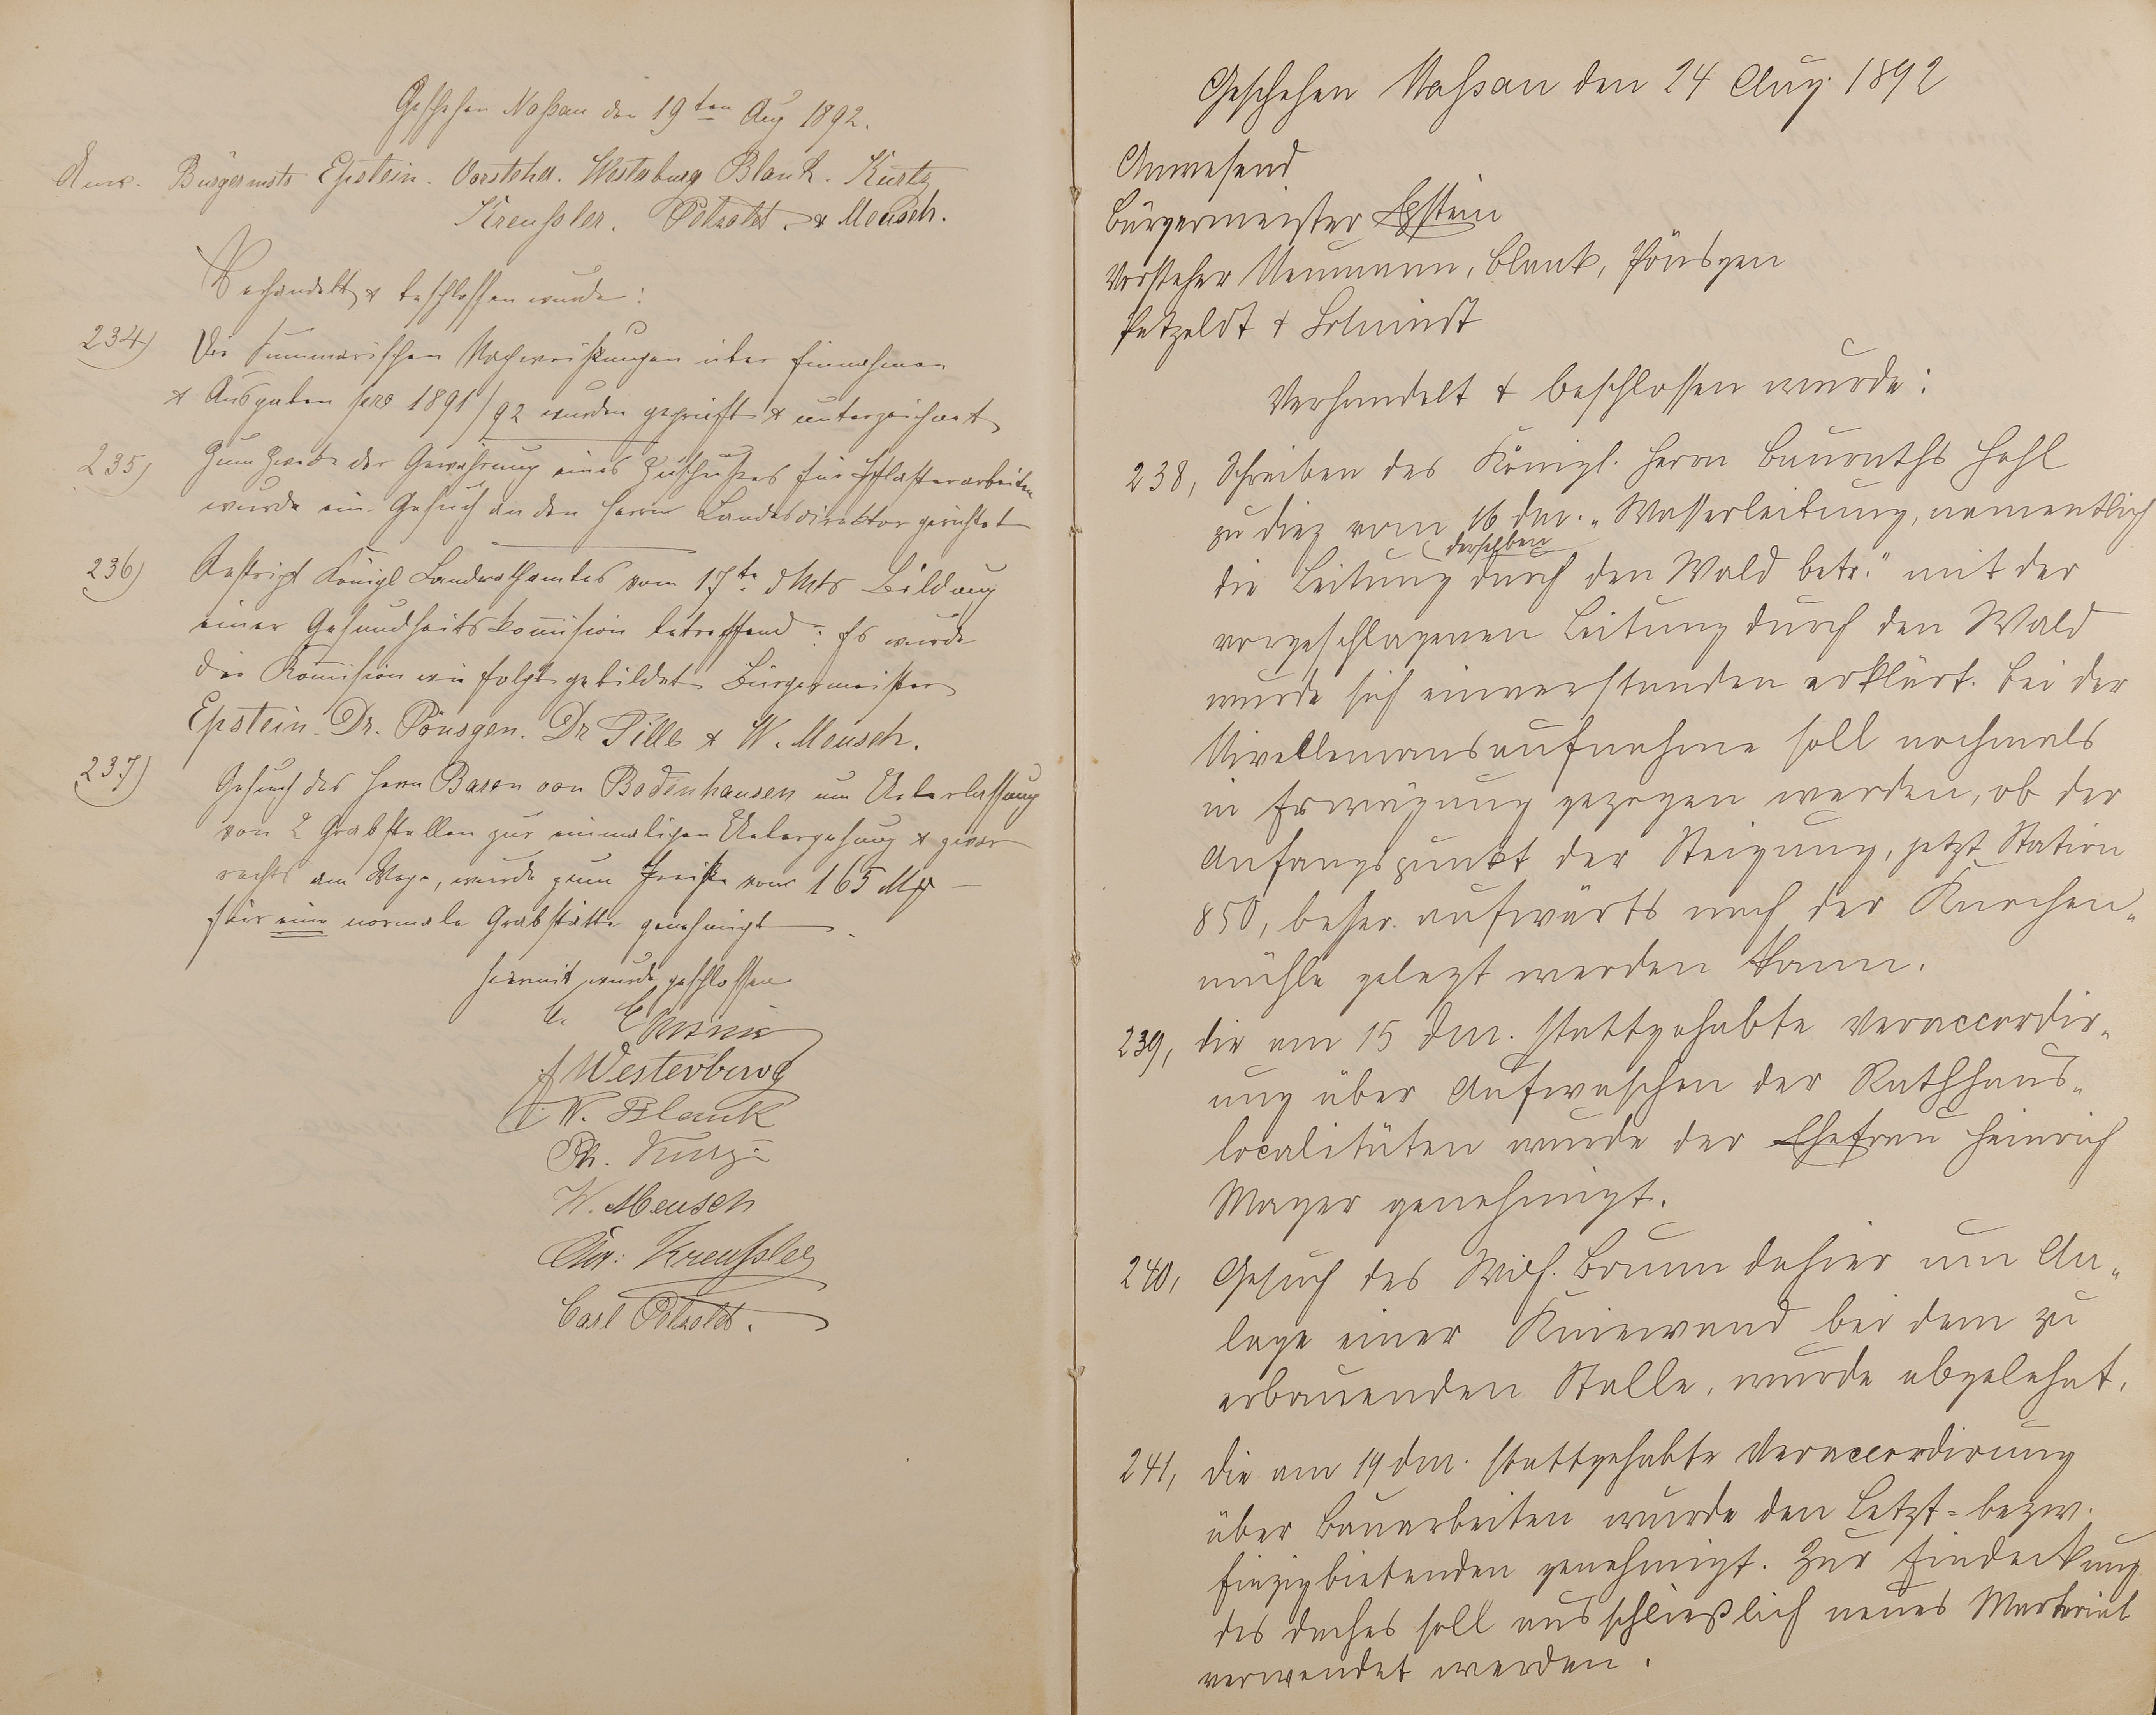 Geschehen Naßau den 19ten Aug 1892.
Anw. Bürgermstr Epstein. Vorsteher. Westerburg Blank. Kurtz
Kreußler. Petzoldt. & Meusch.
Verhandelt & beschlossen wurde:
234) Die Summarischen Nachweißungen über Einnahmen
& Ausgaben pro 1891/92 wurden geprüft & unterzeichnet
235) Zum Zwecke der Gewährung eines Zuschußes für Pflasterarbeiten
wurde ein Gesuch an den Herrn Landesdirektor gerichtet
236) Restript Königl Landrathsamtes vom 17te dMts Bildung
einer Gesundheitskomission betreffend: Es wurde
die Komission wie folgt gebildet Bürgermeister
Epstein. Dr. Pönsgen. Dr Tille & W. Meusch.
237) Gesuch des Herrn Baron von Bodenhausen um Ueberlassung
von 2 Grabstellen zur einmaligen Uebergehung & zwar
rechts am Wege, wurde zum Preiße von 165 Mk
für eine normale Grabstätte genehmigt.
Hiermit wurde geschlossen
Westerburg
W. Blank
Ph. Kurz
W. Meusch
Chr: Kreußler
Carl Petzoldt.
Geschehen Naßau den 24 Aug. 1892
Anwesend
Bürgermeister Epstein
Vorsteher Neumann, Blank, Pönsgen
Petzoldt & Schmidt
Verhandelt & beschlossen wurde:
238, Schreiben des Königl. Herrn Bauraths Hehl
zu Diez vom 16 dM. "Wasserleitung, namentlich
die Leitung derselben durch den Wald betr." mit der
vorgeschlagenen Leitung durch den Wald
wurde sich einverstanden erklärt. Bei der
Nivellementsaufnahme soll nochmals
in Erwägung gezogen werden, ob der
Anfangspunkt der Steigung, jetzt Station
850, besser aufwärts nach der Knochen"
mühle gelegt werden kann.
239, Die am 15 dM. stattgehabte Veraccordir"
ung über Aufwaschen der Rathhaus"
localitäten wurde der Ehefrau Heinrich
Mayer genehmigt.
240, Gesuch des Wilh. Baum dahier um An"
lage einer Kniewand bei dem zu
erbauenden Stalle, wurde abgelehnt.
241, Die am 19 dM. stattgehabte Veraccordirung
über Bauarbeiten wurde den Letzt- bezw.
Einzigbietenden genehmigt. Zur Eindeckung
des Daches soll ausschließlich neues Material
verwendet werden.